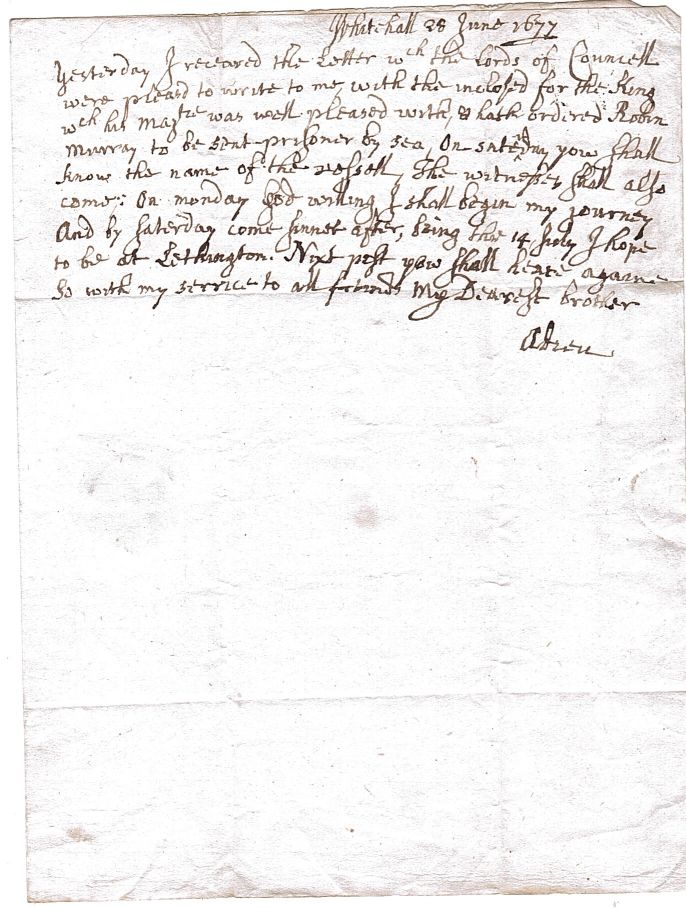 Whitehall 28 June 1677
Yesterday I receaved the Letter wch the Lords of Councell
were pleasd to write to me, with the inclosed for the King
wch his Matie was well pleased with, & hath ordered Robin
Murray to be sent prisoner by sea, On saterday yow shall
know the name of the vessell, The witnesses shall also
come: On monday God willing I shall begin my journey
And by saterday come sinnet after, being the 14 July I hope
to be at Lethington. Next post yow shall heare againe
So with my service to all freinds My Dearest brother
Adieu